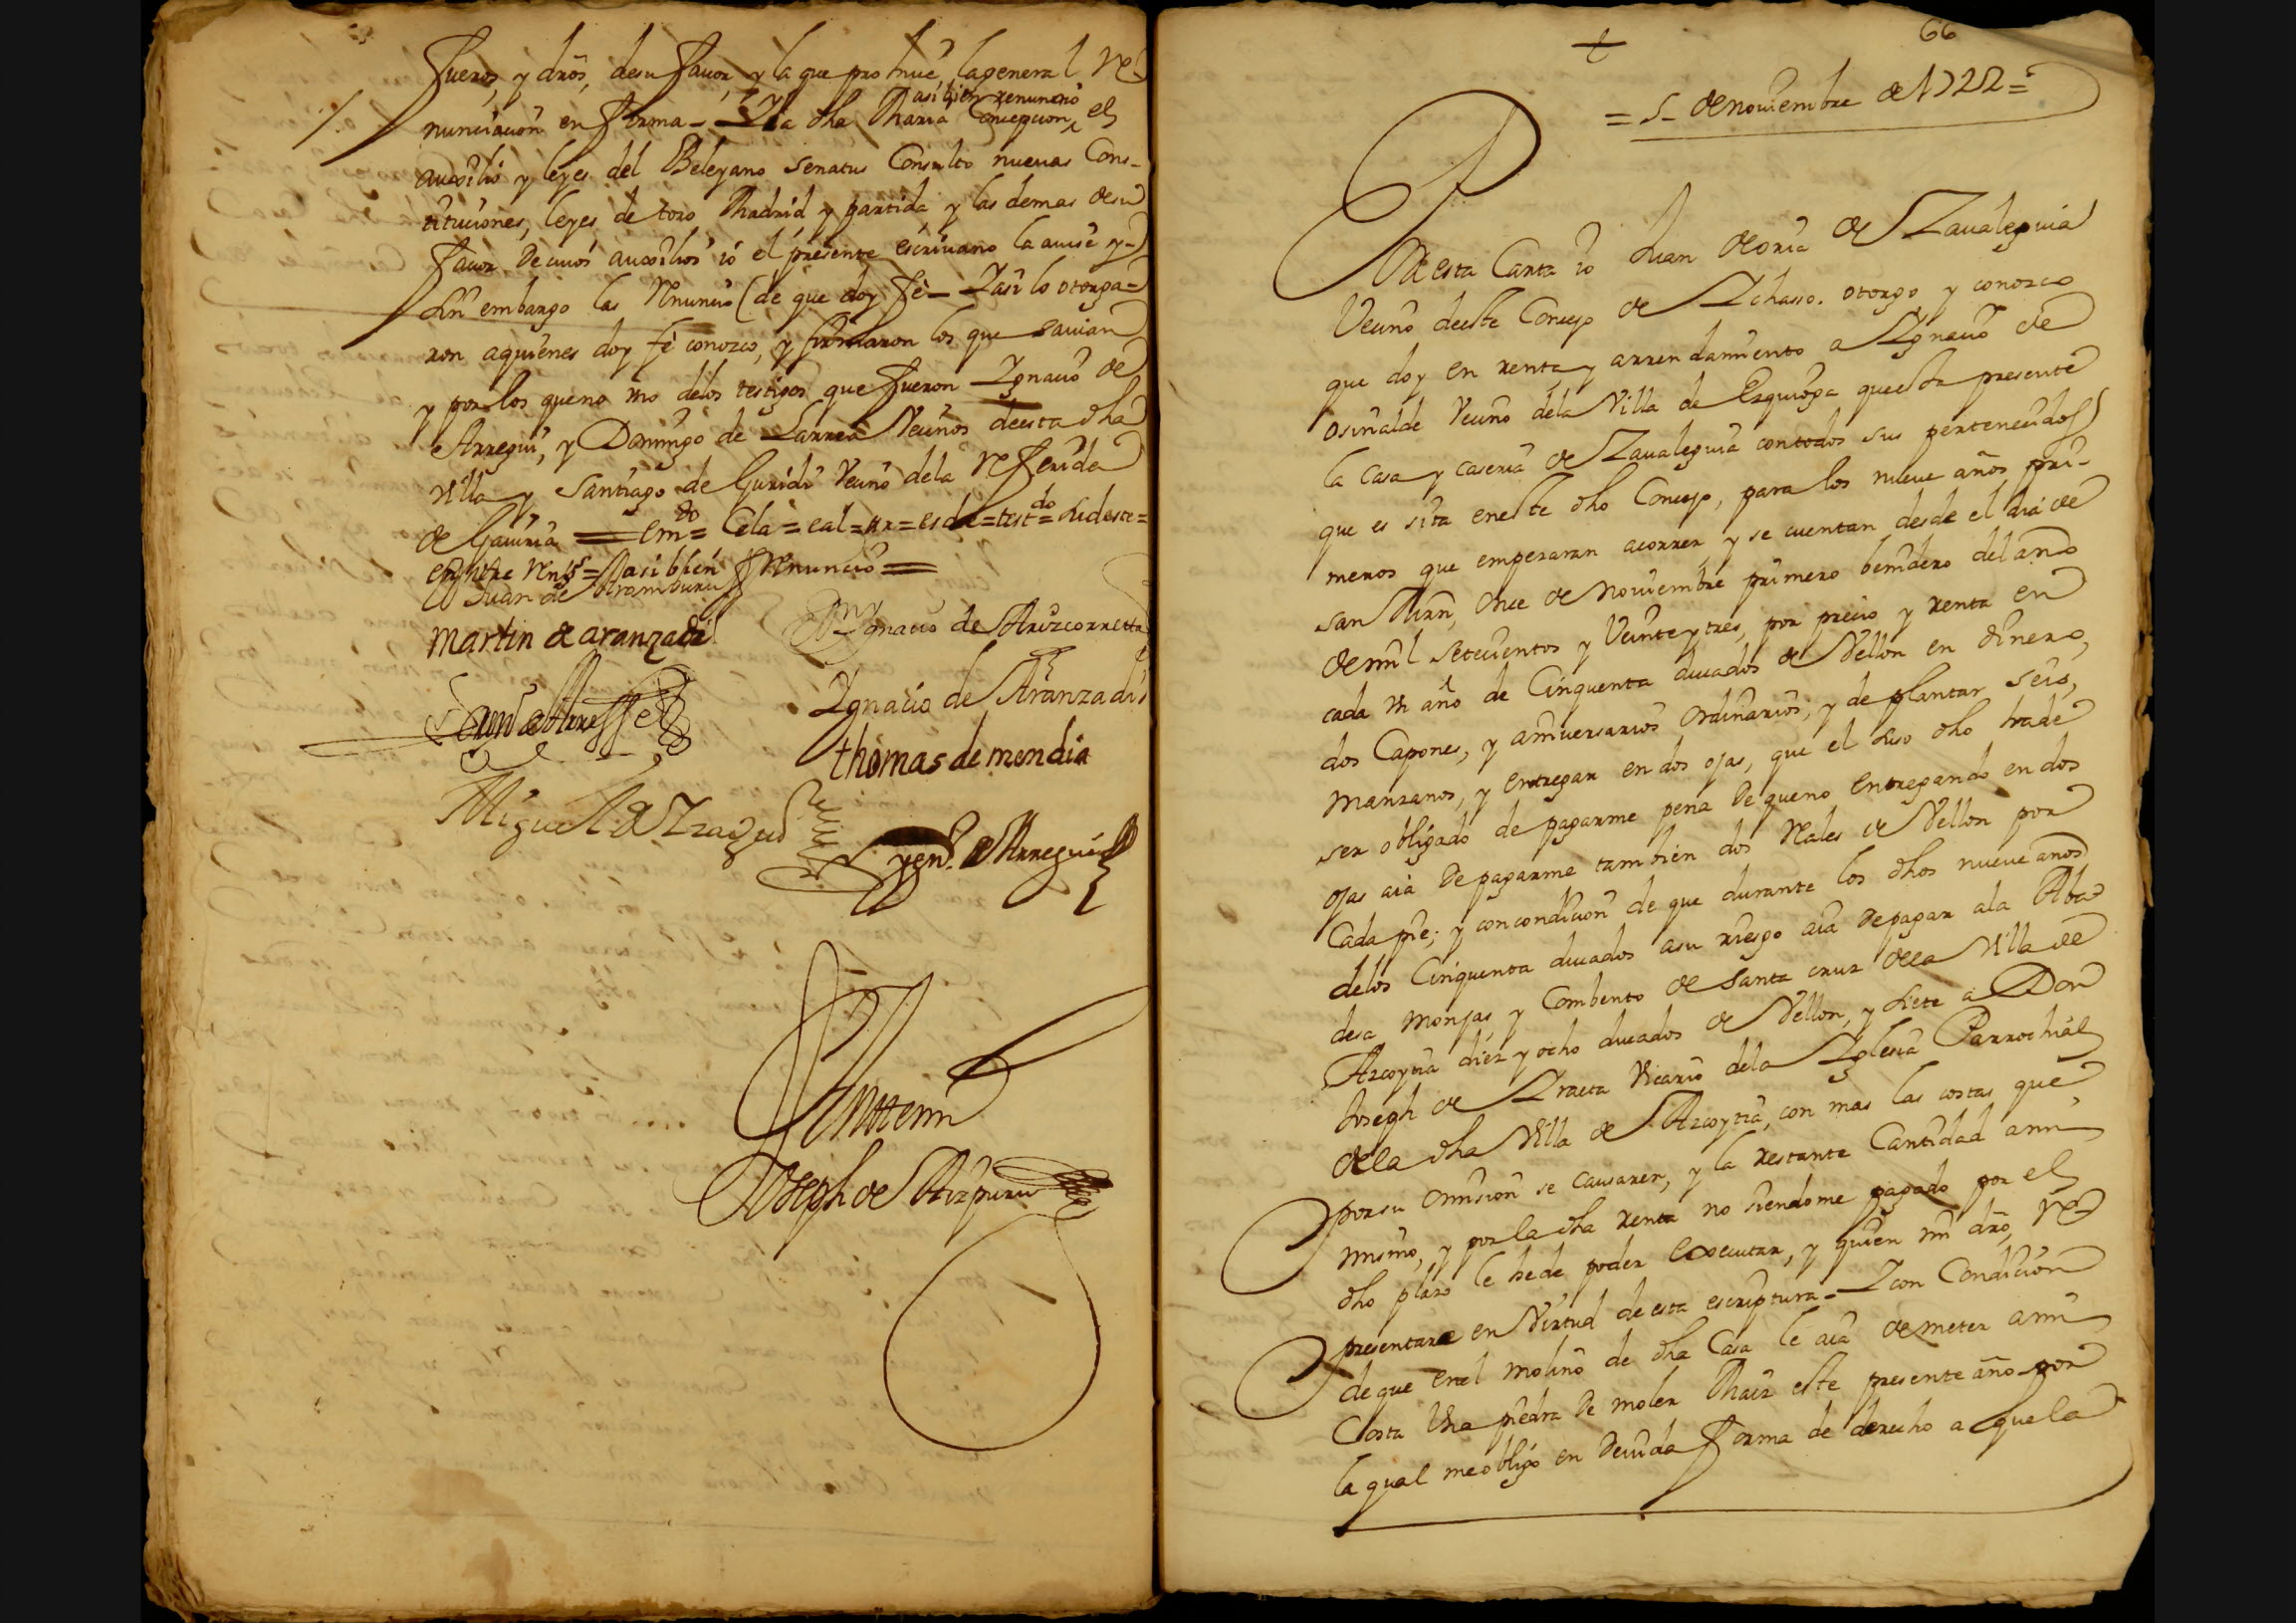 fueros, y dros, de su favor, y la que prohive, la general Re-
nunciacion en forma - Y la dha Maria Concepcion, el
asi bien renuncio
auxilio y leyes del Beleyano Senatus Consulto nuevas Cons-
tituciones, leyes de toro Madrid y partida y las demas de su
favor de cuios auxilios io el presente escrivano la avise y
sin embargo las Renuncio (de que doy fè - Y asi lo otorga-
ron aquienes doy fè conozco, y firmaron los que savian
y por los que no uno delos testigos que fueron Ygnacio de
Arregui, y Domingo de Larrea Vecinos de esta dha
Villa y Santiago de Guridi Vecino dela Referida
de Gaviria = em.do = Cela = eal = ur = es de = test.do = sideste =
entre Rengs = asi bien Renuncio =
Juan de Aramburu
Martin de aranzadi
Ygnacio de Arizcorreta
Ygnacio de Aranzadi
thomas de mendia
Miguel de Yraazu
Ygn.o de Arregui
Ante mi
Joseph de Aizpuru
66
= 5 - de noviembre de 1722 =
De esta Carta io Juan de oria de Zavaleguia
Vecino de este Concejo de Ychasso. otorgo y conozco
que doy en renta y arrendamiento a Ygnacio de
osinalde Vecino dela Villa de Ezquioga que esta presente
la Casa y caseria de Zavaleguia con todos sus pertenecidos
que es sita en este dho Concejo, para los nueve años pri-
meros que empezaran acorrer y se cuentan desde el dia de
san Mrn, Once de noviembre primero benidero del año
de mil setecientos y Veinte y tres, por precio y renta en
cada un año de Cinquenta ducados de Vellon en dinero,
dos Capones, y aniversarios Ordinarios; y de plantar seis,
manzanos, y entregar en dos ojas, que el suso dho hade
ser obligado de pagarme pena de que no entregando en dos
ojas aia de pagarme tambien dos Reales de Vellon por
Cada pie; y con condicion de que durante los dhos nueve años
delos Cinquenta ducados asu riesgo aia de pagar ala Aba-
desa Monjas, y Combento de Santa cruz dela Villa de
Azcoytia diez y ocho ducados de Vellon, y siete a Don
Joseph de Yraeta Vicario dela Yglesia Parrochial
dela dha Villa de Azcoytia, con mas las costas que
por su Omision se causaren, y la restante Cantidad ami
mismo, y por la dha renta no siendome pagado por el
dho plazo le hede poder executar, y quien mi dro, Re-
presentare en Virtud de esta escriptura - Y con Condicion
de que en el molino de dha Casa le aia de meter ami
Costa Una piedra de moler Maiz este presente año por
la qual me obligo en devida forma de derecho a que la